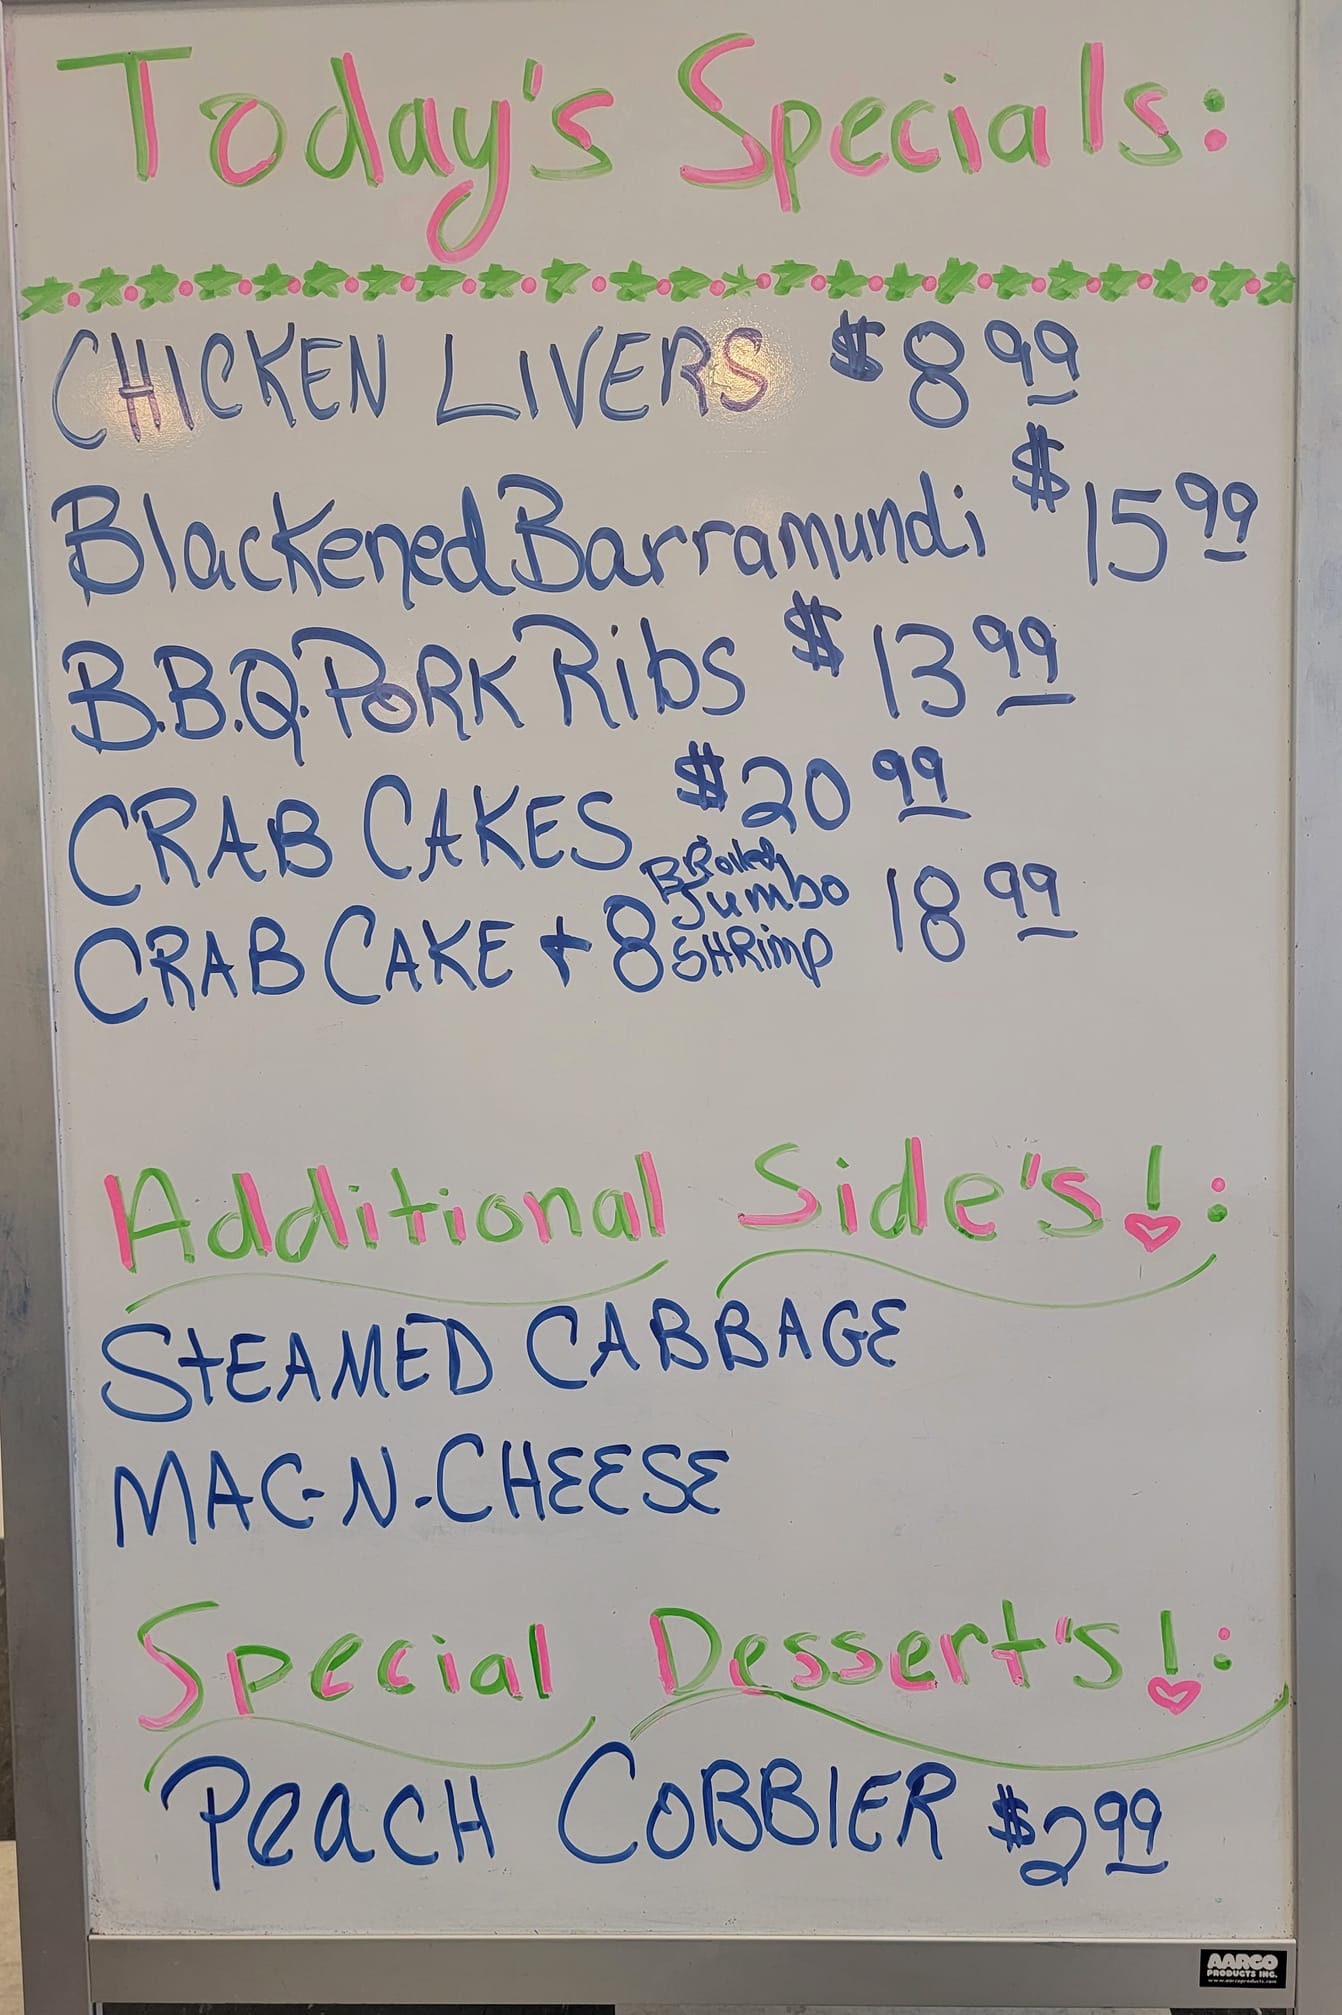 Today's Specials:
CHICKEN LIVERS $8.99
Blackened Barramundi $15.99
B.B.Q. PORK Ribs $13.99
CRAB CAKES $20.99
CRAB CAKE + 8 BRoiled Jumbo SHRimp 18.99
Additional Side's!:
STEAMED CABBAGE
MAC-N-CHEESE
Special Dessert's!:
PeacH CoBBlER $2.99
AARCO
PRODUCTS INC.
www.aarcoproducts.com